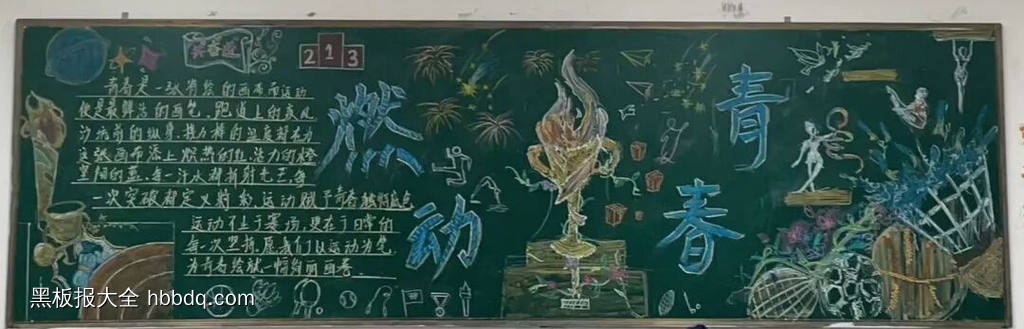 2 1 3
青春是一张待绘的画布而运动
便是最鲜活的画笔。跑道上的疾风
沙坑前的纵身,接力棒的温度都在为
这张画布添上燃热的红,活力的橙
一次突破都定义精彩,运动赋予青春独特底色
运动不止于赛场,更在于日常的
每一次坚持,愿我们以运动为笔
为青春绘就一幅绚丽画卷。
燃
动
青
春
黑板报大全 hbbdq.com